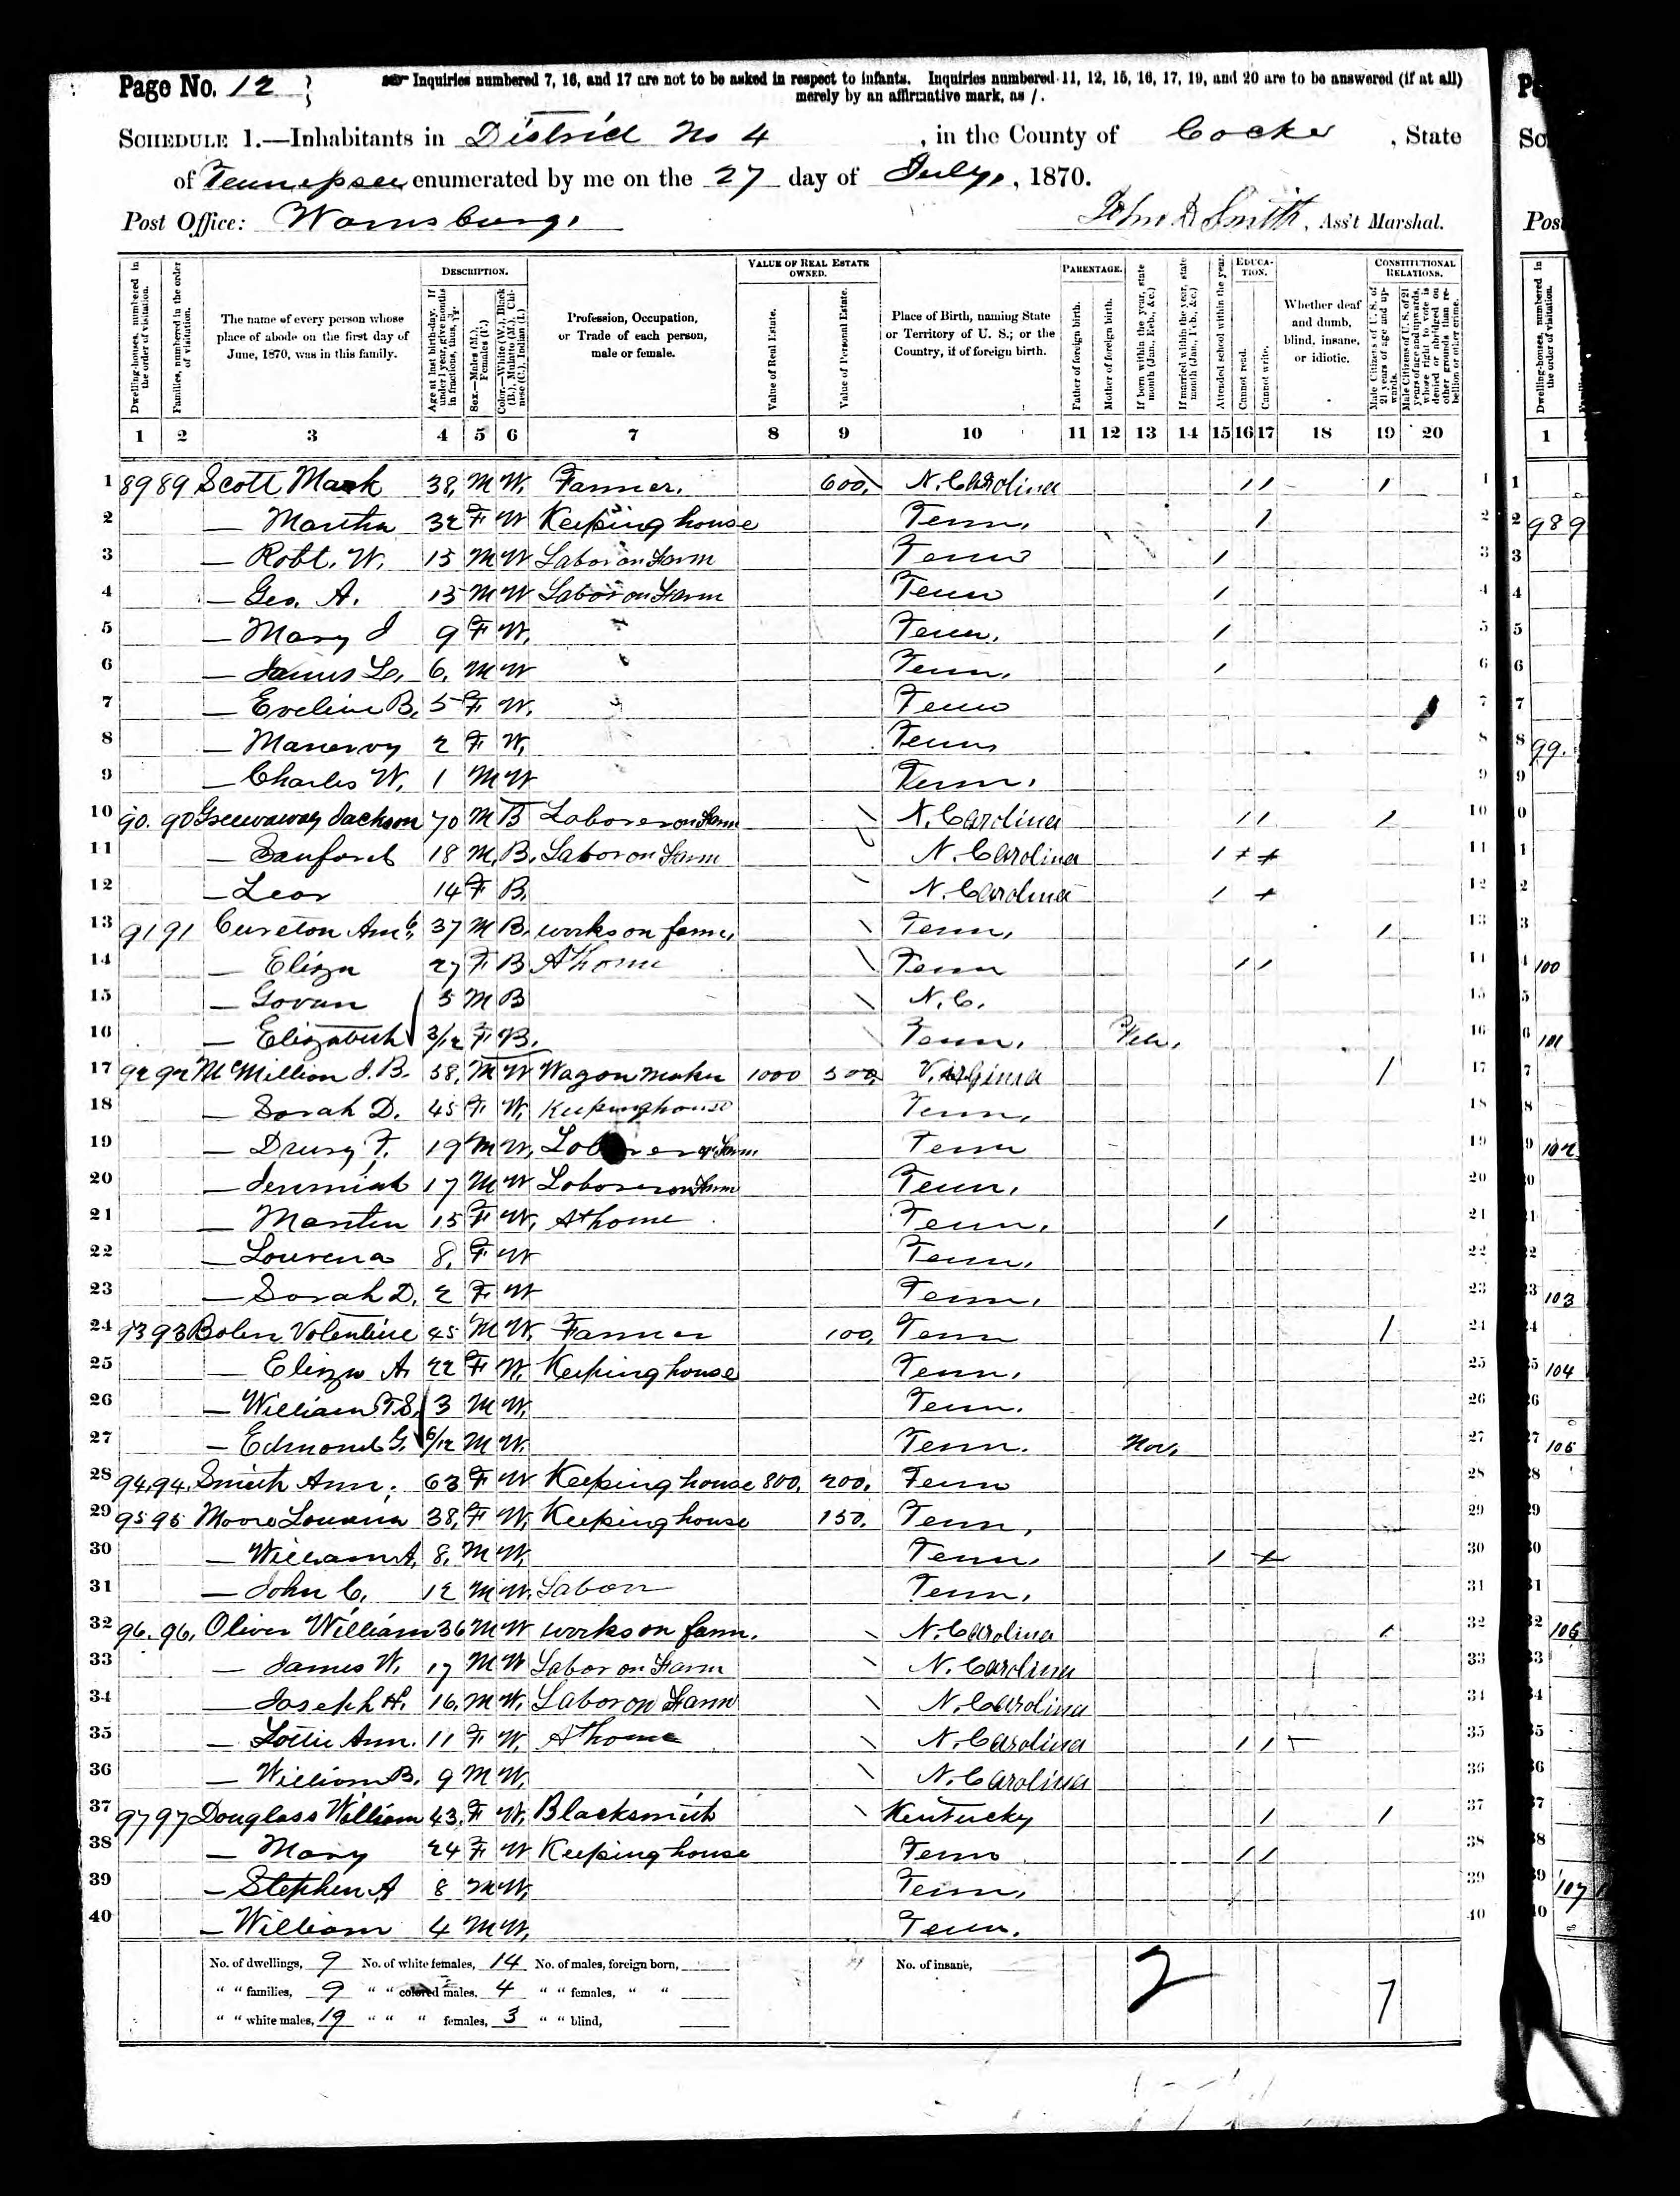 Page No. 12 Inquiries numbered 7, 16, and 17 are not to be asked in respect to infants. Inquiries numbered 11, 12, 15, 16, 17, 19, and 20 are to be answered (if at all)
merely by an affirmative mark, as /.
SCHEDULE 1.—Inhabitants in District No 4, in the County of Cocke, State
of Tennessee, enumerated by me on the 27 day of July, 1870.
Post Office: John D Smith, Ass't Marshal.
Dwelling-houses, numbered in the order of visitation.
Families, numbered in the order of visitation.
The name of every person whose place of abode on the first day of June, 1870, was in this family.
DESCRIPTION.
Age at last birth-day. If under 1 year, give months in fractions, thus, 3/12.
Sex.—Males (M.), Females (F.)
Color.—White (W.), Black (B.), Mulatto (M.), Chinese (C.), Indian (I.)
Profession, Occupation, or Trade of each person, male or female.
VALUE OF REAL ESTATE OWNED.
Value of Real Estate.
Value of Personal Estate.
Place of Birth, naming State or Territory of U. S.; or the Country, if of foreign birth.
PARENTAGE.
Father of foreign birth.
Mother of foreign birth.
If born within the year, state month (Jan., Feb., &c.)
If married within the year, state month (Jan., Feb., &c.)
Attended school within the year.
EDUCATION.
Cannot read.
Cannot write.
Whether deaf and dumb, blind, insane, or idiotic.
CONSTITUTIONAL RELATIONS.
Male Citizens of U. S. of 21 years of age and upwards.
Male Citizens of U. S. of 21 years of age and upwards, whose right to vote is denied or abridged on other grounds than rebellion or other crime.
1 2 3 4 5 6 7 8 9 10 11 12 13 14 15 16 17 18 19 20
1 89 89 Scott Mark 38. M W. Farmer. 600. N. Carolina / / / 1
2 — Martha 32 F W Keeping house Tenn. / 2
3 — Robt. W. 15 M W Labor on Farm Tenn / 3
4 — Geo. A. 13 M W Labor on Farm Tenn / 4
5 — Mary J 9 F W. Tenn. / 5
6 — James L. 6. M W Tenn. / 6
7 — Eveline B. 5 F W. Tenn 7
8 — Manervy 2 F W. Tenn 8
9 — Charles W. 1 M W Tenn. 9
10 90. 90 Greenaway Jackson 70 M B Laborer on Farm \ N. Carolina / / / 10
11 — Sanford 18 M. B. Labor on Farm N. Carolina / + + 11
12 — 14 F B. \ N. Carolina / + 12
13 91 91 Cureton 37 M B. works on farm. \ Tenn. / 13
14 — Eliza 27 F B At home \ Tenn / / 14
15 — Govan 5 M B \ N. C. 15
16 — Elizabeth 3/12 F B. \ Tenn. 16
17 92 92 McMillion J. B. 58. M W Wagon maker 1000 500 Virginia / 17
18 — Sarah D. 45 F W. Keeping house Tenn. 18
19 — Drury F. 19 M W. Laborer on Farm Tenn 19
20 — Jeremiah 17 M W Laborer on Farm Tenn. 20
21 — Martha 15 F W. At home Tenn. / 21
22 — Lourena 8. F W Tenn. 22
23 — Sarah D. 2 F W Tenn. 23
24 93 93 Bolen Volentine 45 M W. Farmer 100. Tenn / 24
25 — Eliza A. 22 F W. Keeping house Tenn. 25
26 — William 3 M W. Tenn. 26
27 — Edmond G. 6/12 M W. Tenn. Nov. 27
28 94. 94. Smith Ann. 63 F W Keeping house 800. 200. Tenn 28
29 95 95 Moore 38. F W. Keeping house 150. Tenn. 29
30 — William A. 8. M W. Tenn. / + 30
31 — John C. 12 M W. Labor Tenn. 31
32 96. 96. Oliver William 36 M W works on farm. \ N. Carolina / 32
33 — James W. 17 M W Labor on Farm \ N. Carolina 33
34 — Joseph H. 16. M W. Labor on Farm \ N. Carolina 34
35 — Lottie Ann. 11 F W. At home \ N. Carolina / / 35
36 — William B. 9 M W. \ N. Carolina 36
37 97 97 Douglass William 43. F W. Blacksmith \ Kentucky / / 37
38 — Mary 24 F W Keeping house Tenn / / 38
39 — Stephen A 8 M W. Tenn. 39
40 — William 4 M W. Tenn. 40
No. of dwellings, 9 No. of white females, 14 No. of males, foreign born, No. of insane, 2 7
" " families, 9 " " colored males, 4 " " females, " "
" " white males, 19 " " " females, 3 " " blind,